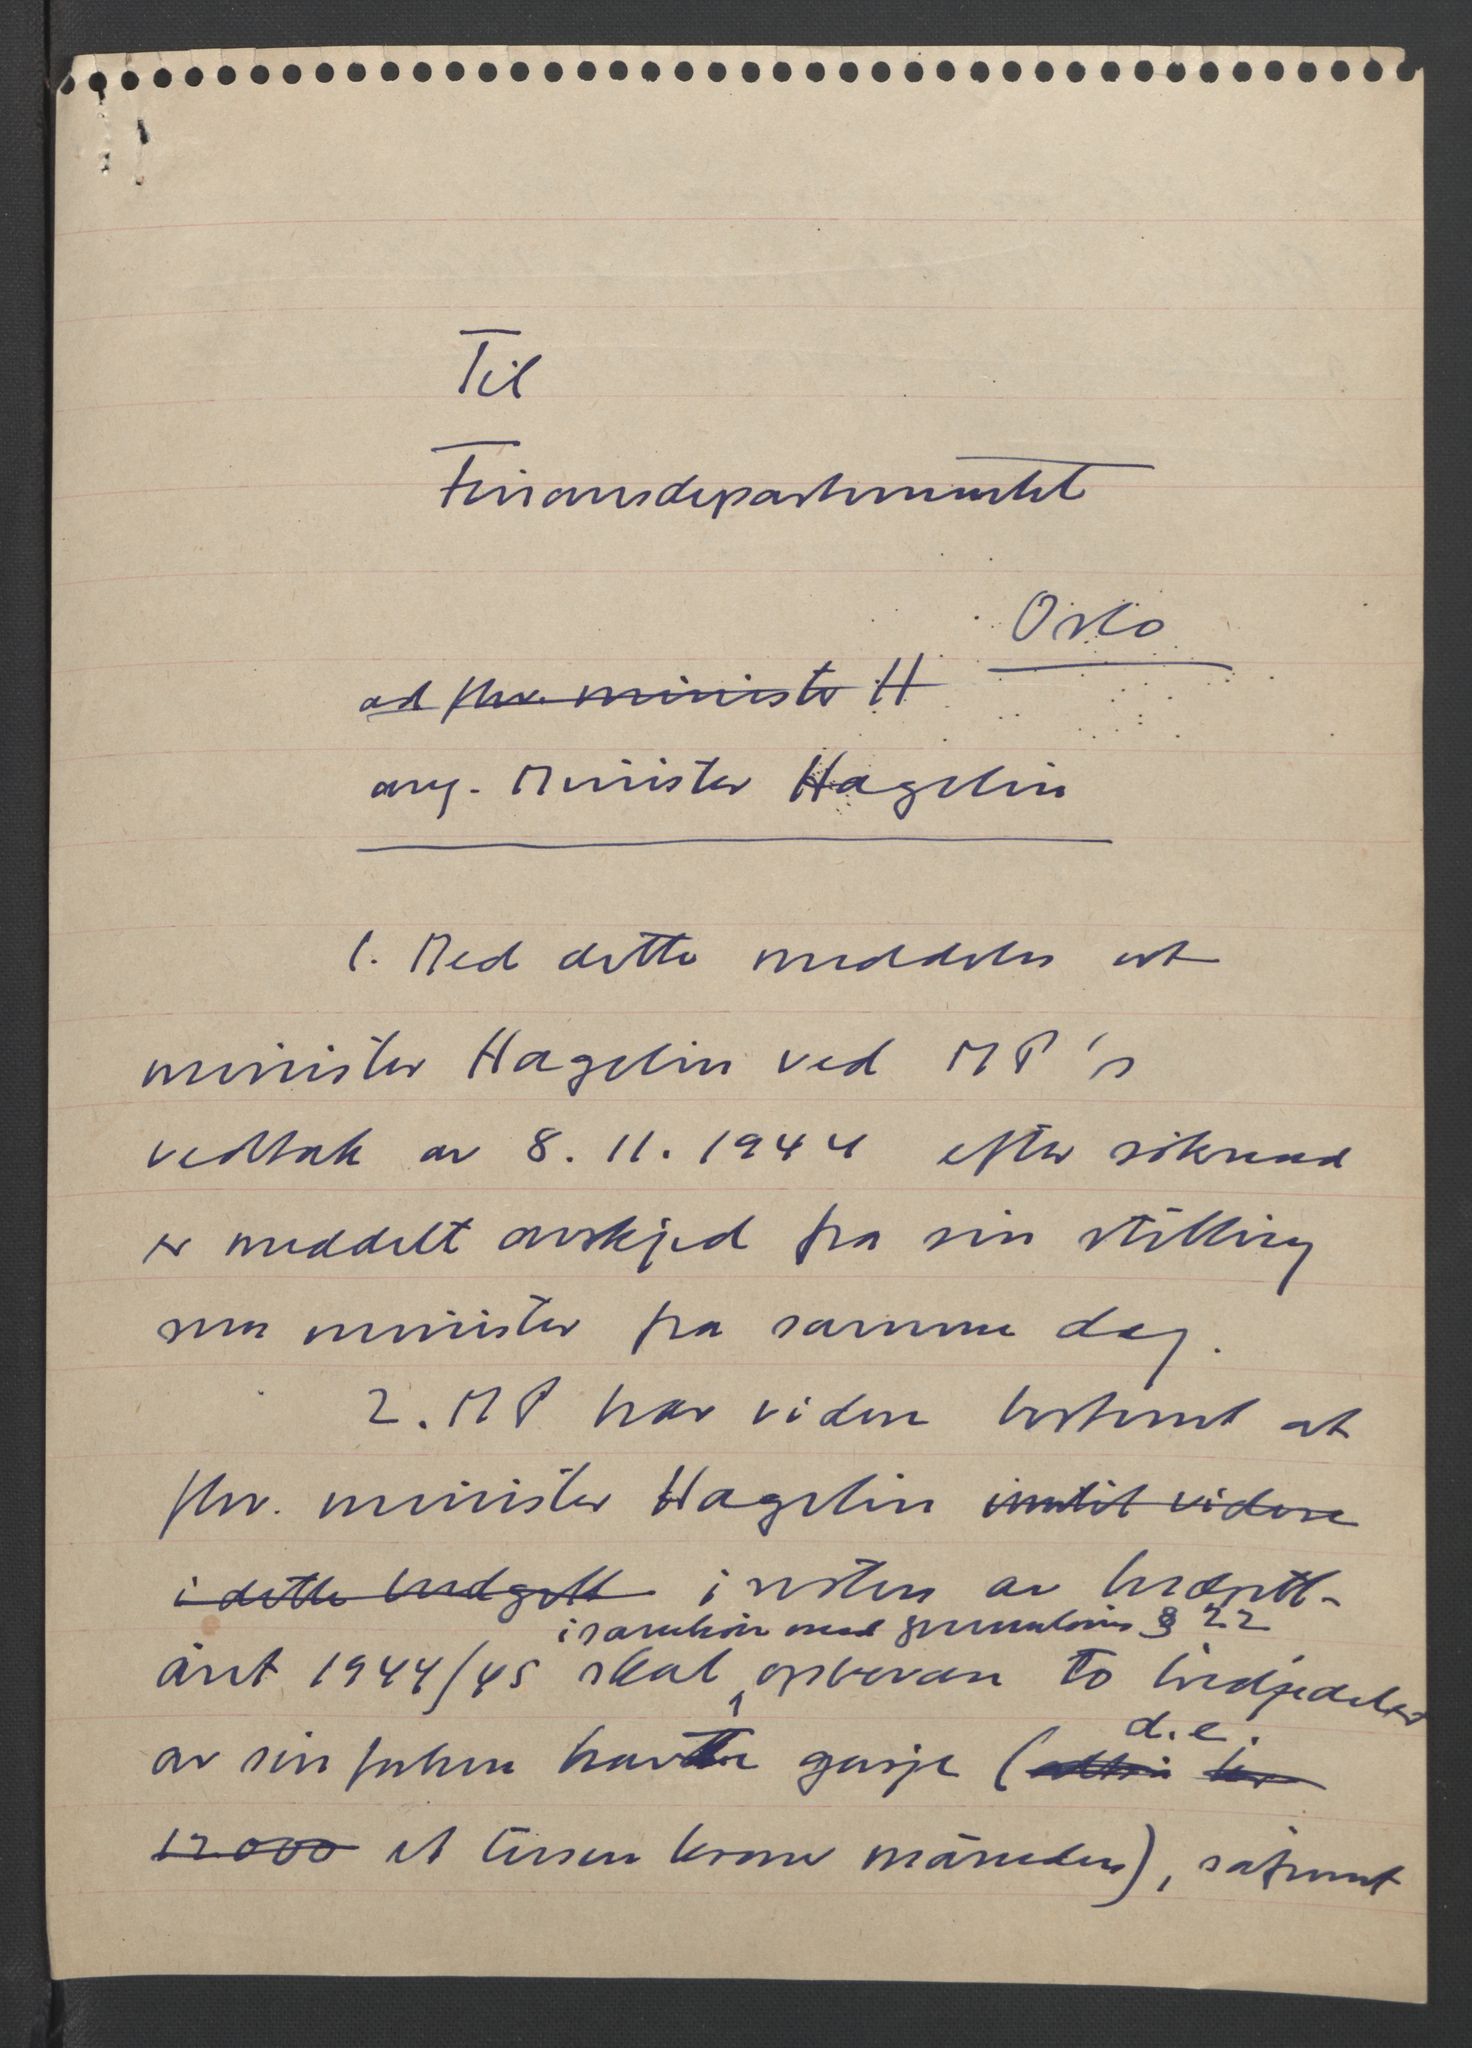 Til
Finansdepartementet
Oslo
ad fhv. minister H
ang. Minister Hagelin
1. Med dette meddeles at
minister Hagelin ved MP's
vedtak av 8.11.1944 efter søknad
er meddelt avskjed fra sin stilling
som minister fra samme dag.
2. MP har videre bestemt at
fhv. minister Hagelin inntil videre
i dette budgett i resten av budgett-
i samsvar med § 22
året 1944/45 skal oppebære to tredjedeler
d.e.
av sin gasje (
12.000 et tusen kroner måneden), såfremt